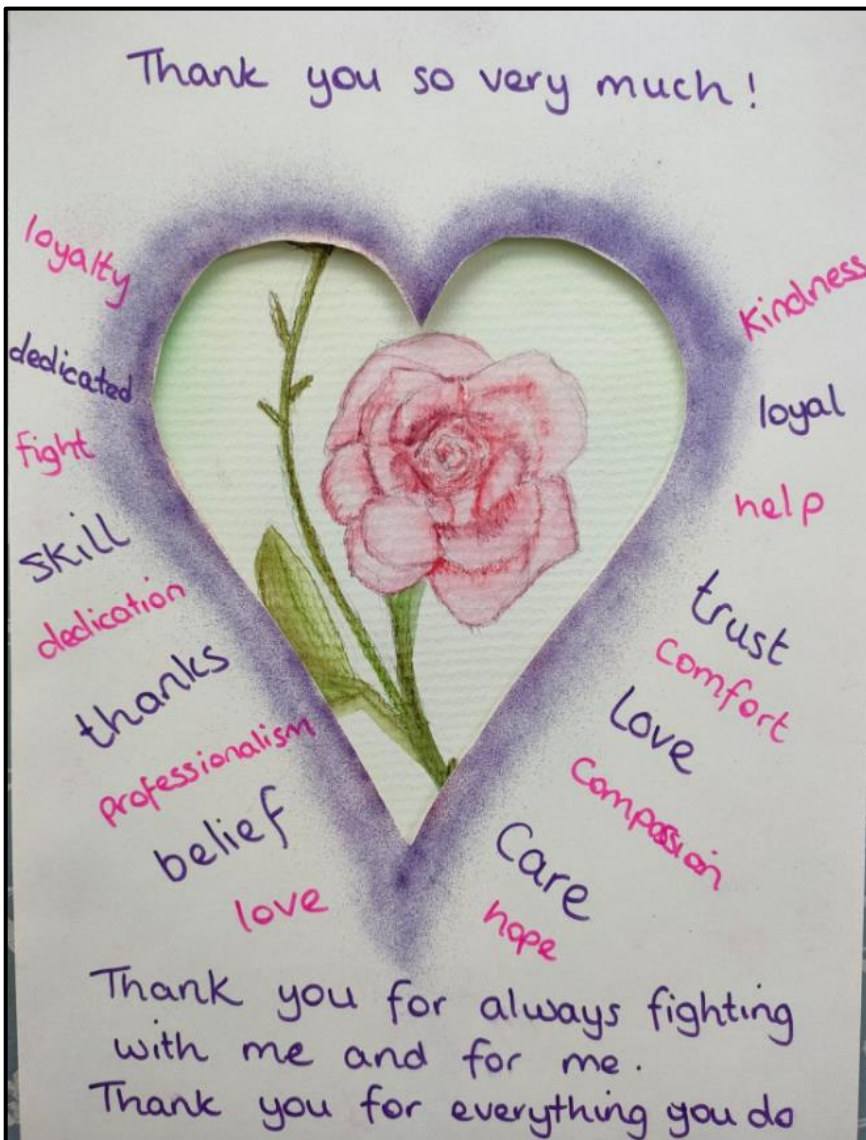 Thank you so very much!
loyalty
dedicated
fight
skill
dedication
thanks
professionalism
belief
love
kindness
loyal
help
trust
comfort
Love
compassion
Care
hope
Thank you for always fighting
with me and for me.
Thank you for everything you do